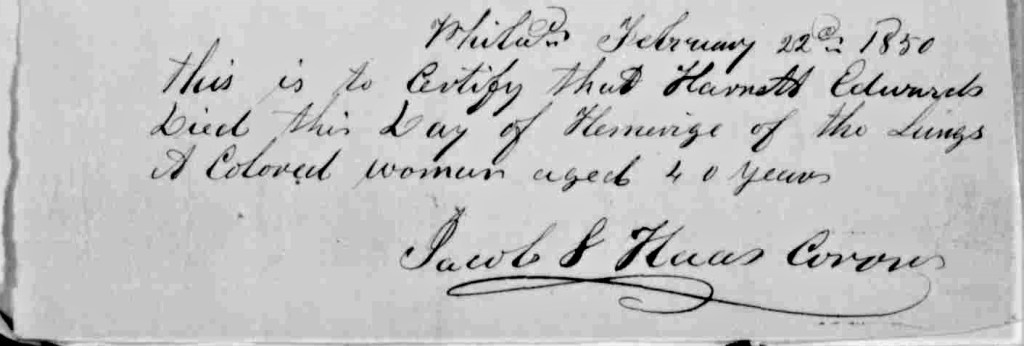 Philada February 22d 1850
this is to Certify that Harriett Edwards
Died this Day of Hemerige of the Lungs
A Colored woman aged 40 years
Jacob S Haas Coroner